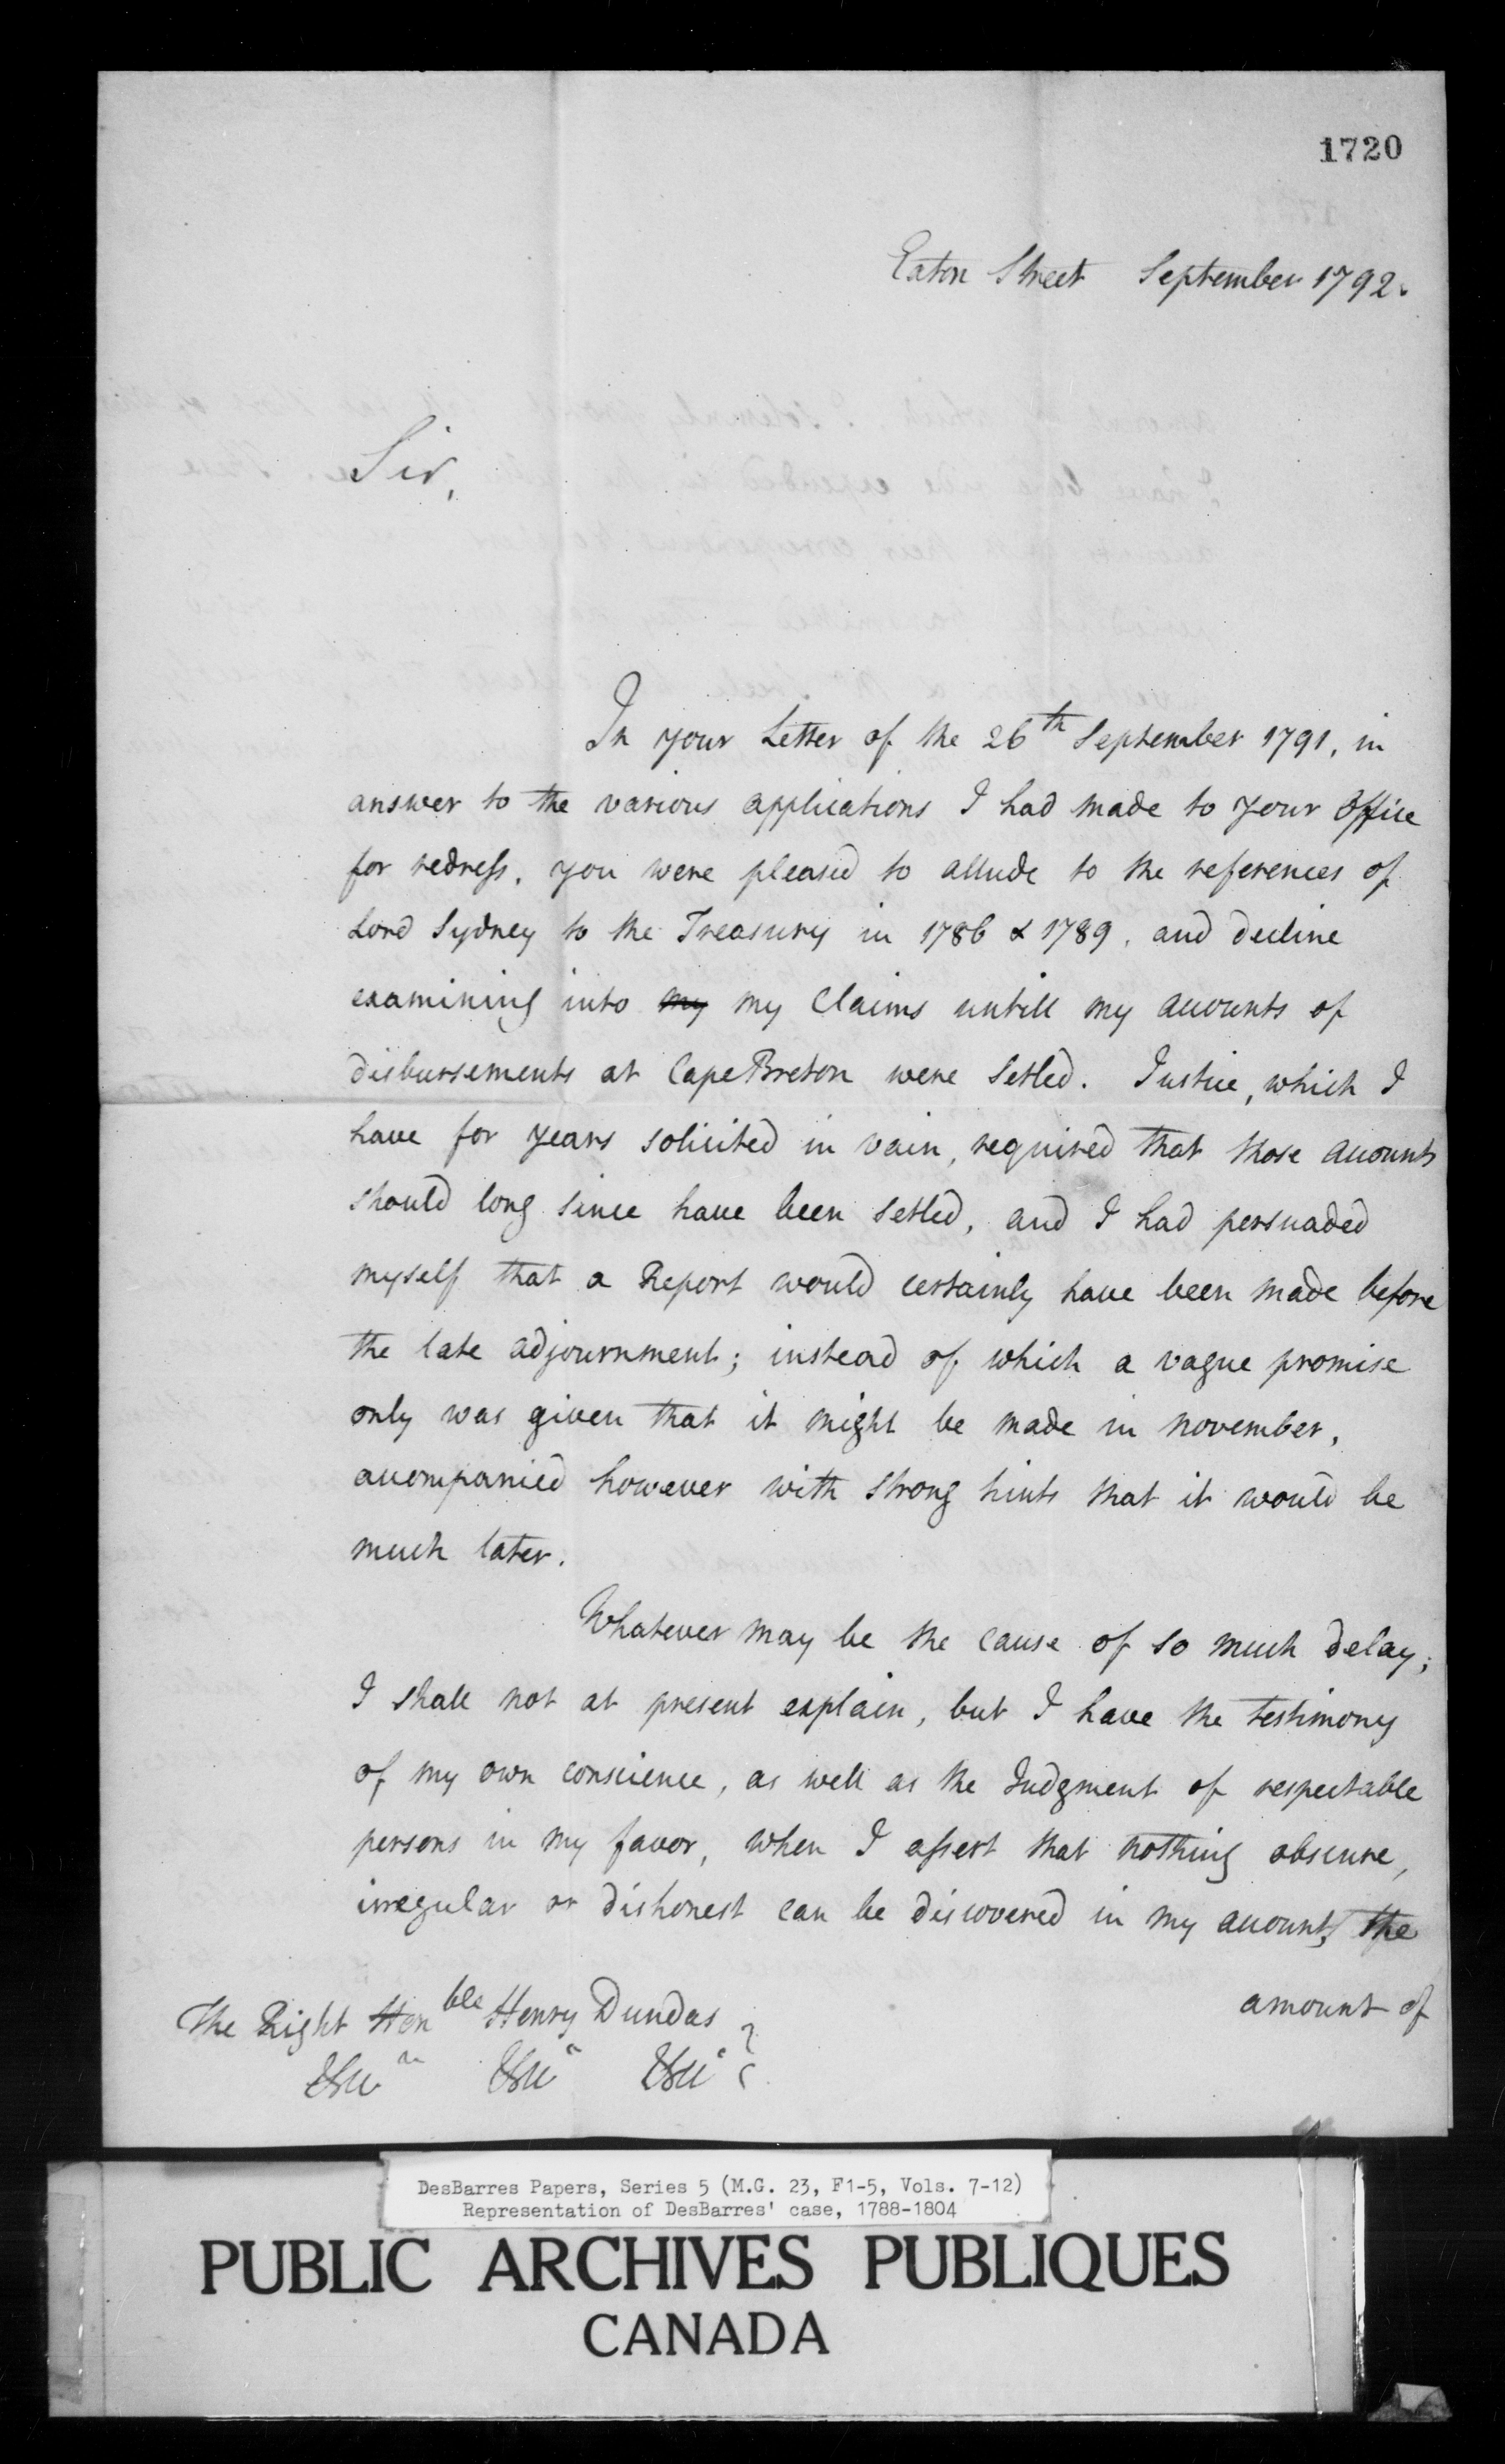 1720
Eaton Street September 1792.
Sir,
In your Letter of the 26th September 1791, in
answer to the various applications I had made to your Office
for redress, you were pleased to allude to the references of
Lord Sydney to the Treasury in 1786 & 1789, and decline
examining into my my Claims untill my accounts of
disbursements at Cape Breton were Setled. Justice, which I
have for years solicited in vain, required that those accounts
should long since have been setled, and I had persuaded
myself that a Report would certainly have been made before
the late adjournment; instead of which a vague promise
only was given that it might be made in November,
accompanied however with strong hints that it would be
much later.
Whatever may be the cause of so much delay;
I shall not at present explain, but I have the testimony
of my own conscience, as well as the Judgment of respectable
persons in my favor, when I assert that nothing obscure,
irregular or dishonest can be discovered in my accounts, the
amount of
The Right Honble Henry Dundas
&c &c &c
DesBarres Papers, Series 5 (M.G. 23, F1-5, Vols. 7-12)
Representation of DesBarres' case, 1788-1804
PUBLIC ARCHIVES PUBLIQUES
CANADA